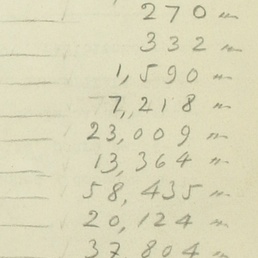 270 〃
332 〃
1,590 〃
7,218 〃
23,009 〃
13,364 〃
58,435 〃
20,124 〃
37 804 〃